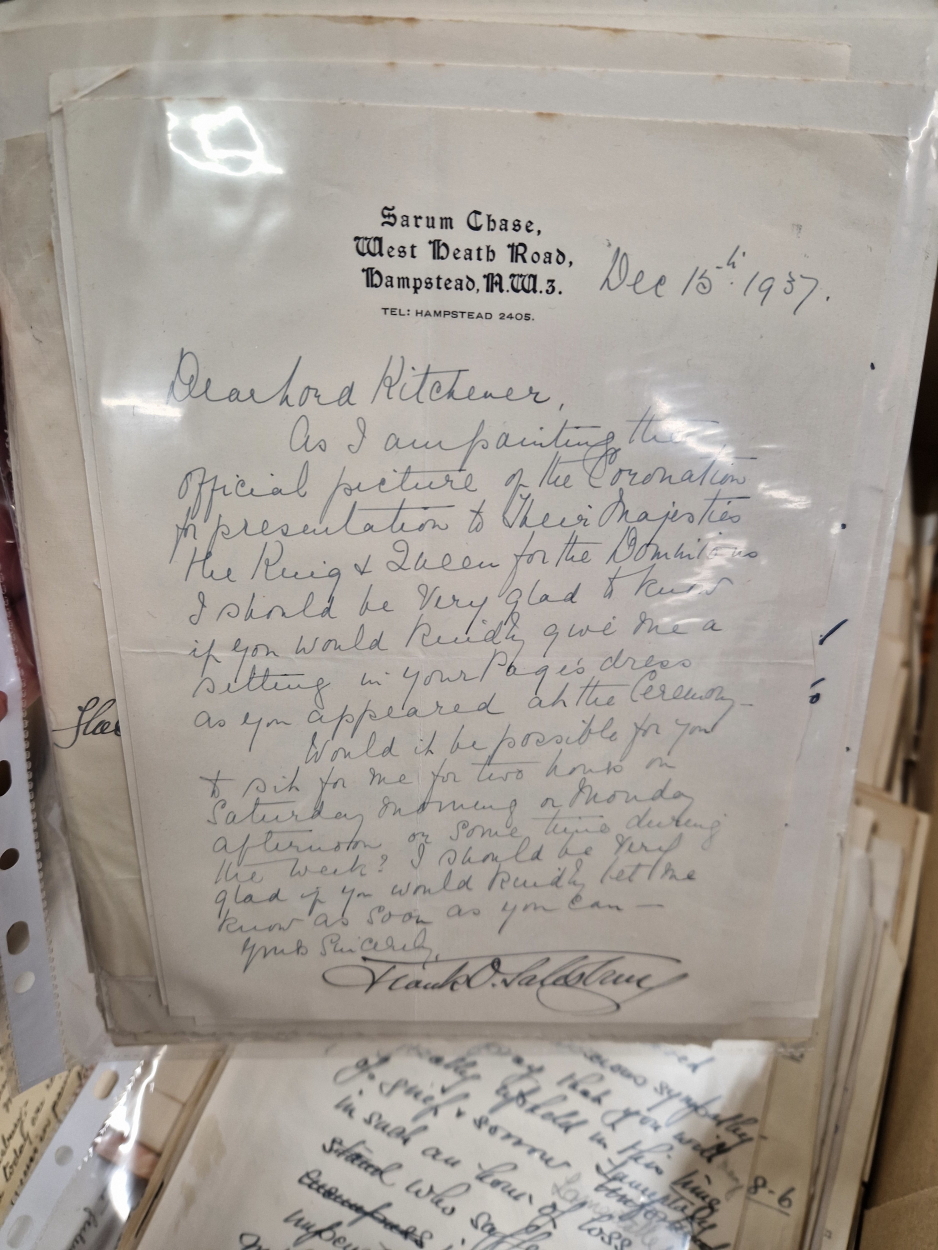 Sarum Chase,
West Heath Road,
Hampstead, N.W.3.
TEL: HAMPSTEAD 2405.
Dec 15th 1937.
Dear Lord Kitchener,
As I am painting the
official picture of the Coronation
for presentation to Their Majesties
the King & Queen for the Dominions
I should be very glad to know
if you would kindly give me a
sitting in your Page's dress
as you appeared at the Ceremony—
Would it be possible for you
to sit for me for two hours on
Saturday morning or Monday
afternoon or some time during
the week? I should be very
glad if you would kindly let me
know as soon as you can —
Yours Sincerely,
Frank O. Salisbury
that you will
upheld in this time
of grief & sorrow
in such an hour of loss
stand who
8-6